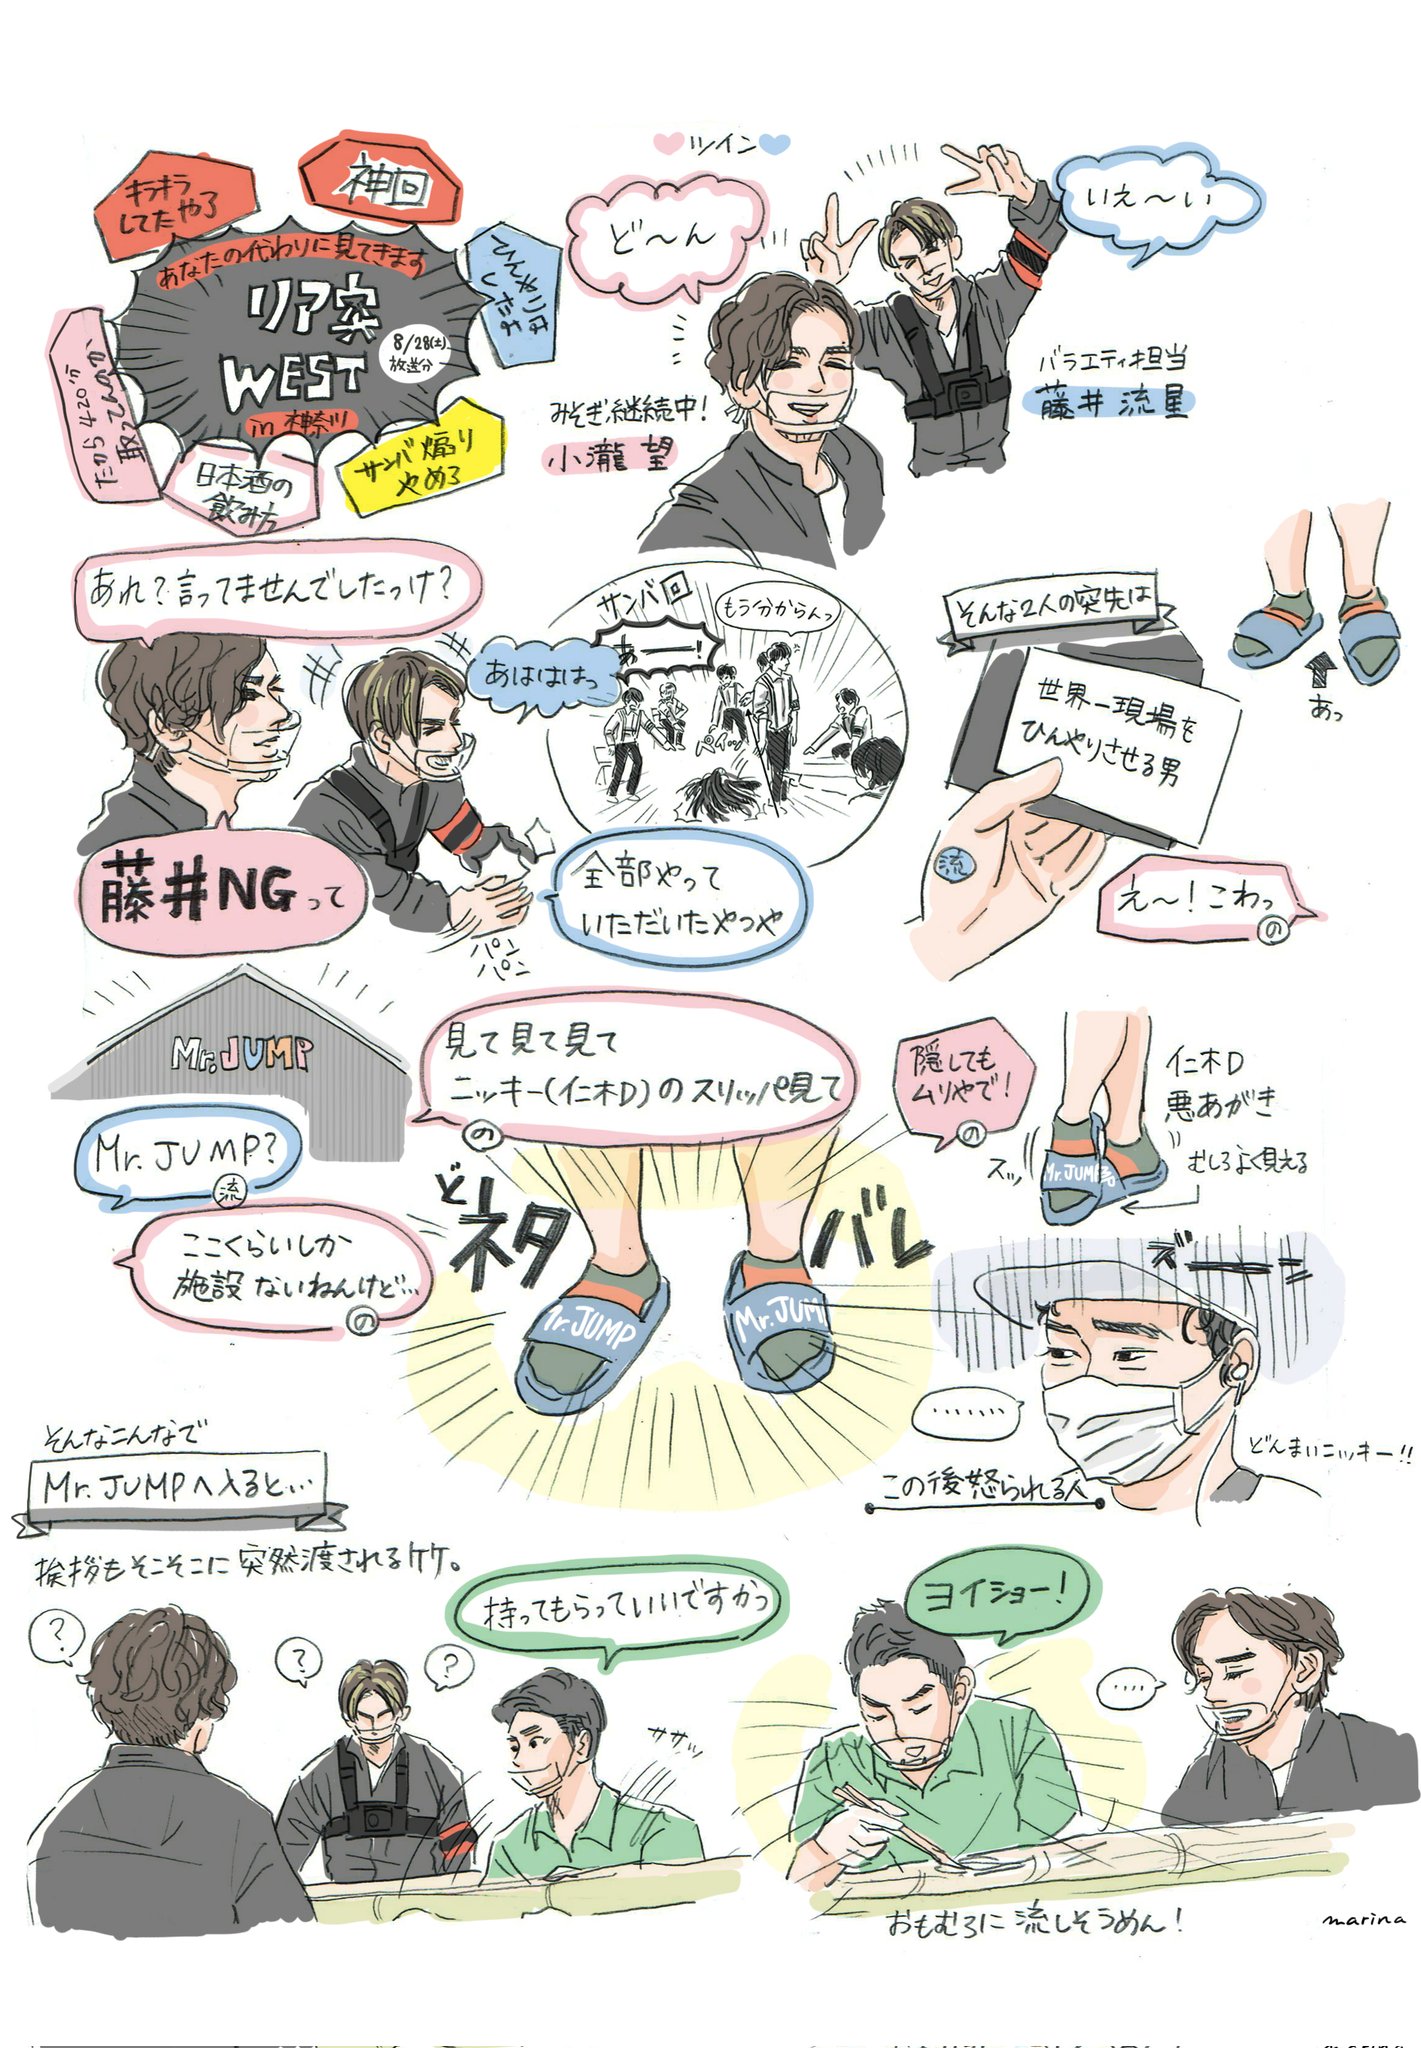 キラキラ
してたやろ
神回
ひんやりは
しだね
あなたの代わりに見てきます
リア突
WEST
8/28(土)
放送分
in 神奈川
だから420分
取ってんのか
日本酒の
飲み方
サンバ煽り
やめろ
ツイン
ど〜ん
いえ〜い
みそぎ継続中!
小瀧 望
バラエティ担当
藤井 流星
あれ?言ってませんでしたっけ?
あはははっ
藤井NGって
パン
パン
サンバ回
あ——!
もう分からんっ
全部やって
いただいたやつや
そんな2人の突先は
世界一現場を
ひんやりさせる男
流
え〜!こわっ
の
あっ
Mr.JUMP
Mr.JUMP?
流
ここくらいしか
施設ないねんけど…
の
見て見て見て
ニッキー(仁木D)のスリッパ見て
の
どネタバレ
Mr.JUMP
Mr.JUM
隠しても
ムリやで!
の
仁木D
悪あがき
むしろよく見える
スッ
Mr.JUMP
ズーーーン
.......
どんまいニッキー!!
この後怒られる人
そんなこんなで
Mr.JUMPへ入ると…
挨拶もそこそこに突然渡されるケケ。
?
?
?
持ってもらっていいですかっ
ササッ
ヨイショー!
....
おもむろに流しそうめん!
marina